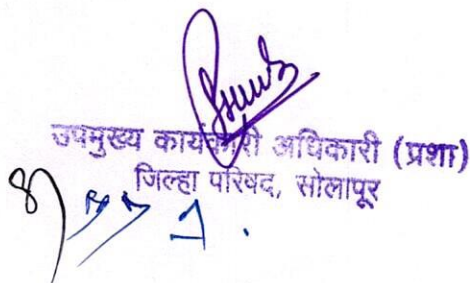 उपमुख्य कार्यकारी अधिकारी (प्रशा)
जिल्हा परिषद, सोलापूर